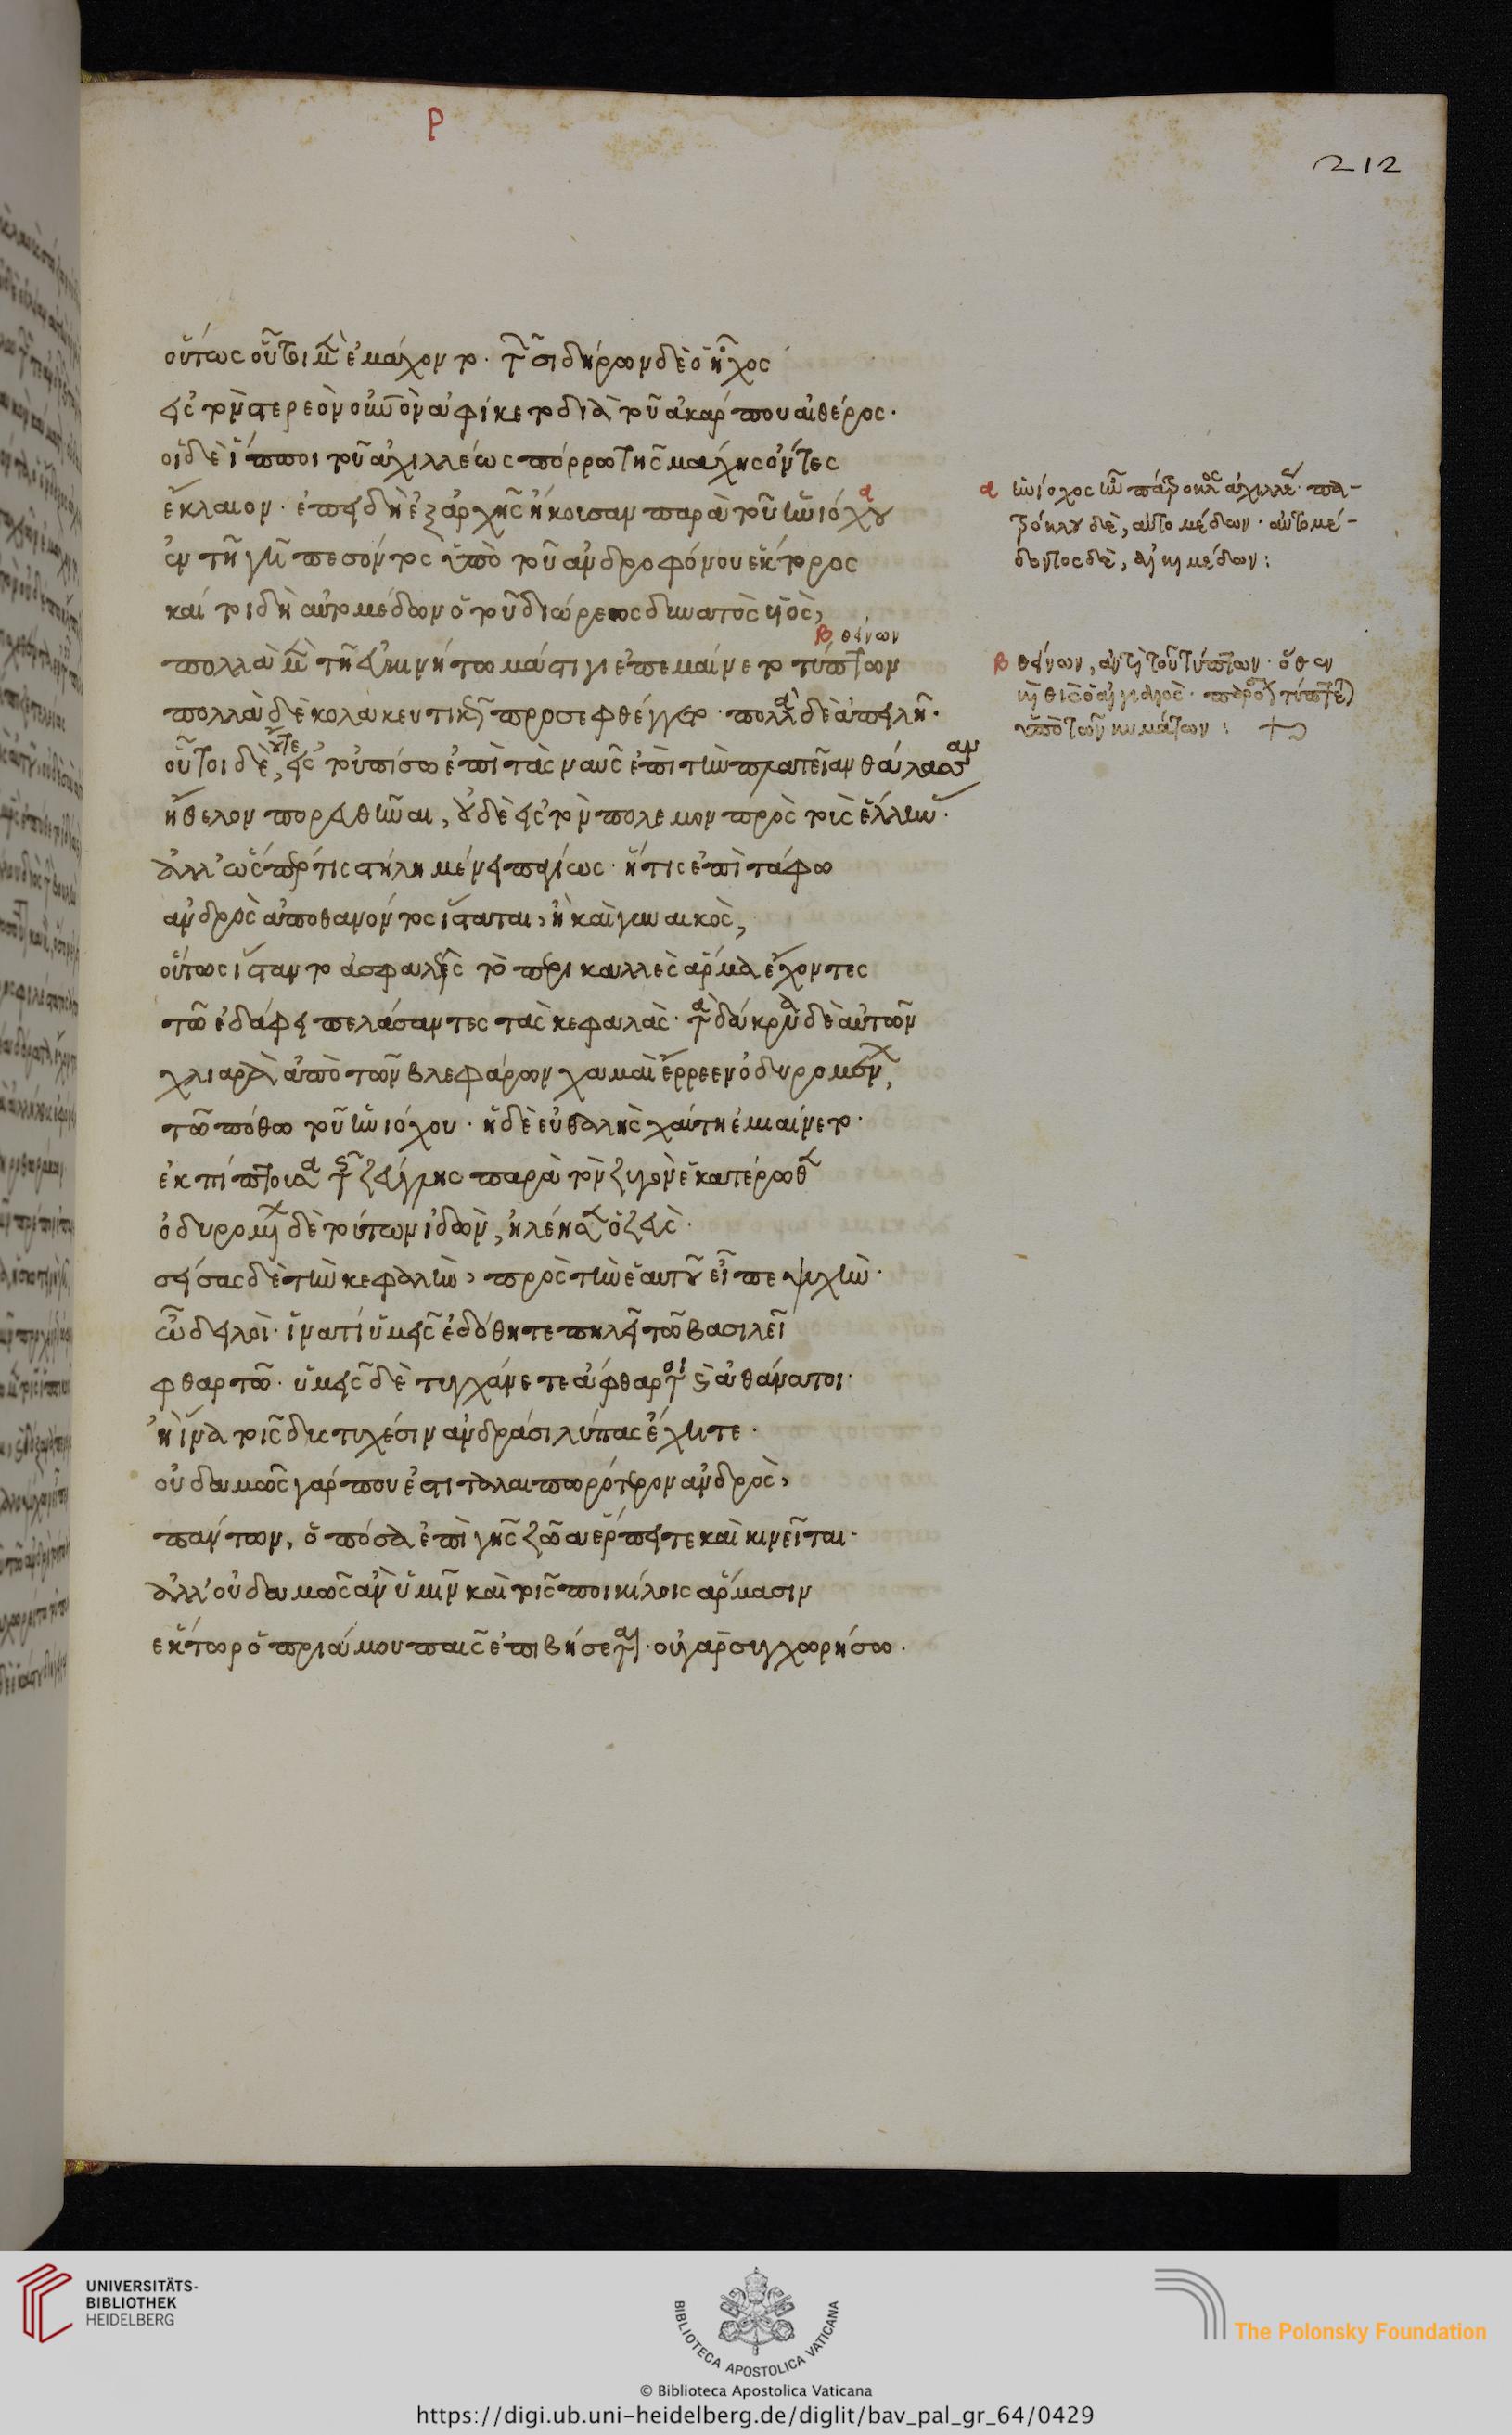 Ρ
212
οὕτως οὗτοι μὲν ἐμάχοντο· τῶν σιδηρέων δὲ ὁ ἦχος
εἰς τὸν στερεὸν οὐρανὸν ἀφίκετο διὰ τοῦ ἀκάρπου αἰθέρος·
οἱ δὲ ἵπποι τοῦ ἀχιλλέως πόρρω τῆς μάχης ὄντες
ἔκλαιον· ἐπειδὴ ἐξαρχῆς ἤκουσαν παρὰ τοῦ ἡνιόχου α
ἐν τῇ γῇ πεσόντος ὑπὸ τοῦ ἀνδροφόνου ἕκτορος
καίτοι δὴ αὐτομέδων ὁ τοῦ διώρεως δυνατὸς υἱὸς,
β θείνων
πολλὰ μὲν τῇ εὐκινήτω μάστιγι ἐπεμαίνετο τύπτων
πολλὰ δὲ κολακευτικῶς προσεφθέγγετο· πολλὰ δὲ ἀπειλῇ·
οὗτοι δὲ, οὔτε εἰς τοὐπίσω ἐπὶ τὰς ναῦς ἐπὶ τὴν πλατεῖαν θάλασσαν
ἤθελον πορευθῆναι, οὐδὲ εἰς τὸν πόλεμον πρὸς τοὺς ἕλληνας·
ἀλλ' ὥσπερ τις στήλη μένει παγίως· ἥτις ἐπὶ τάφω
ἀνδρὸς ἀποθανόντος ἵσταται, ἢ καὶ γυναικὸς,
οὕτως ἵσταντο ἀσφαλῶς τὸ περικαλλὲς ἅρμα ἔχοντες
τῶ ἐδάφει πελάσαντες τὰς κεφαλάς· τὰ δάκρυα δὲ αὐτῶν
χλιαρὰ ἀπὸ τῶν βλεφάρων χαμαὶ ἔρρεεν ὀδυρομένων,
τῶ πόθω τοῦ ἡνιόχου· ἡ δὲ εὐθαλὴς χαίτη ἐμιαίνετο·
ἐκπίπτουσα τῆς ζεύγλης παρὰ τὸν ζυγὸν ἑκατέρωθεν
ὀδυρομένους δὲ τούτων ἰδὼν, ἠλέησεν ὁ ζεὺς·
σείσας δὲ τὴν κεφαλὴν, πρὸς τὴν ἑαυτοῦ εἶπε ψυχὴν·
ὦ δειλοὶ· ἱνατί ὑμεῖς ἐδόθητε πηλεῖ τῶ βασιλεῖ
φθαρτῶ· ὑμεῖς δὲ τυγχάνετε ἄφθαρτοι καὶ ἀθάνατοι·
ἢ ἵνα τοῖς δυστυχέσιν ἀνδράσι λύπας ἔχητε·
οὐδαμῶς γάρ που ἐστι ταλαιπωρότερον ἀνδρὸς,
πάντων, ὁπόσα ἐπὶ γῆς ζῶα ἕρπει τε καὶ κινεῖται·
ἀλλ' οὐδαμῶς ἂν ὑμῖν καὶ τοῖς ποικίλοις ἅρμασιν
ἕκτωρ ὁ πριάμου παῖς ἐπιβήσεται· οὐ γὰρ συγχωρήσω·
α ἡνίοχος ἦν πάτροκλος ἀχιλλέως· πα-
τρόκλου δὲ, αὐτομέδων· αὐτομέ-
δοντος δὲ, ἀλκιμέδων:
β θείνων, ἀντὶ τοῦ τύπτων· ὅθεν
καὶ θὶς ὁ αἰγιαλός· παρὸ τύπτεται
ὑπὸ τῶν κυμάτων:
UNIVERSITÄTS-
BIBLIOTHEK
HEIDELBERG
BIBLIOTECA APOSTOLICA VATICANA
© Biblioteca Apostolica Vaticana
The Polonsky Foundation
https://digi.ub.uni-heidelberg.de/diglit/bav_pal_gr_64/0429